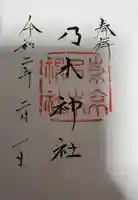 奉拝
乃木神社
令和二年二月一日